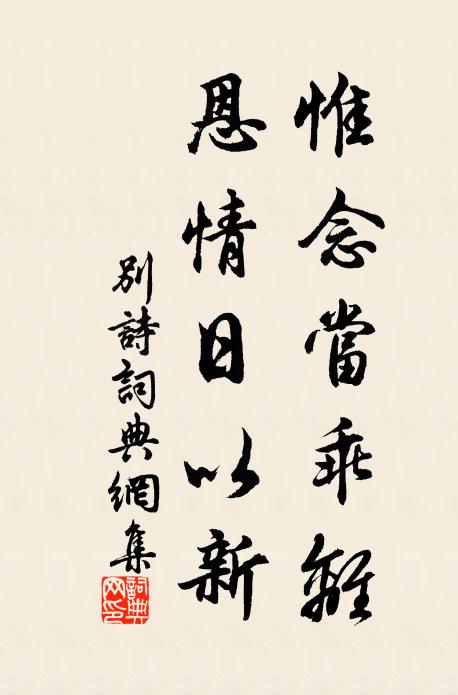 惟念當乖離
恩情日以新
別詩詞典網集
詞典網印